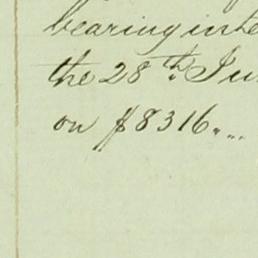 bearing inte
the 28th Ju
on $8316